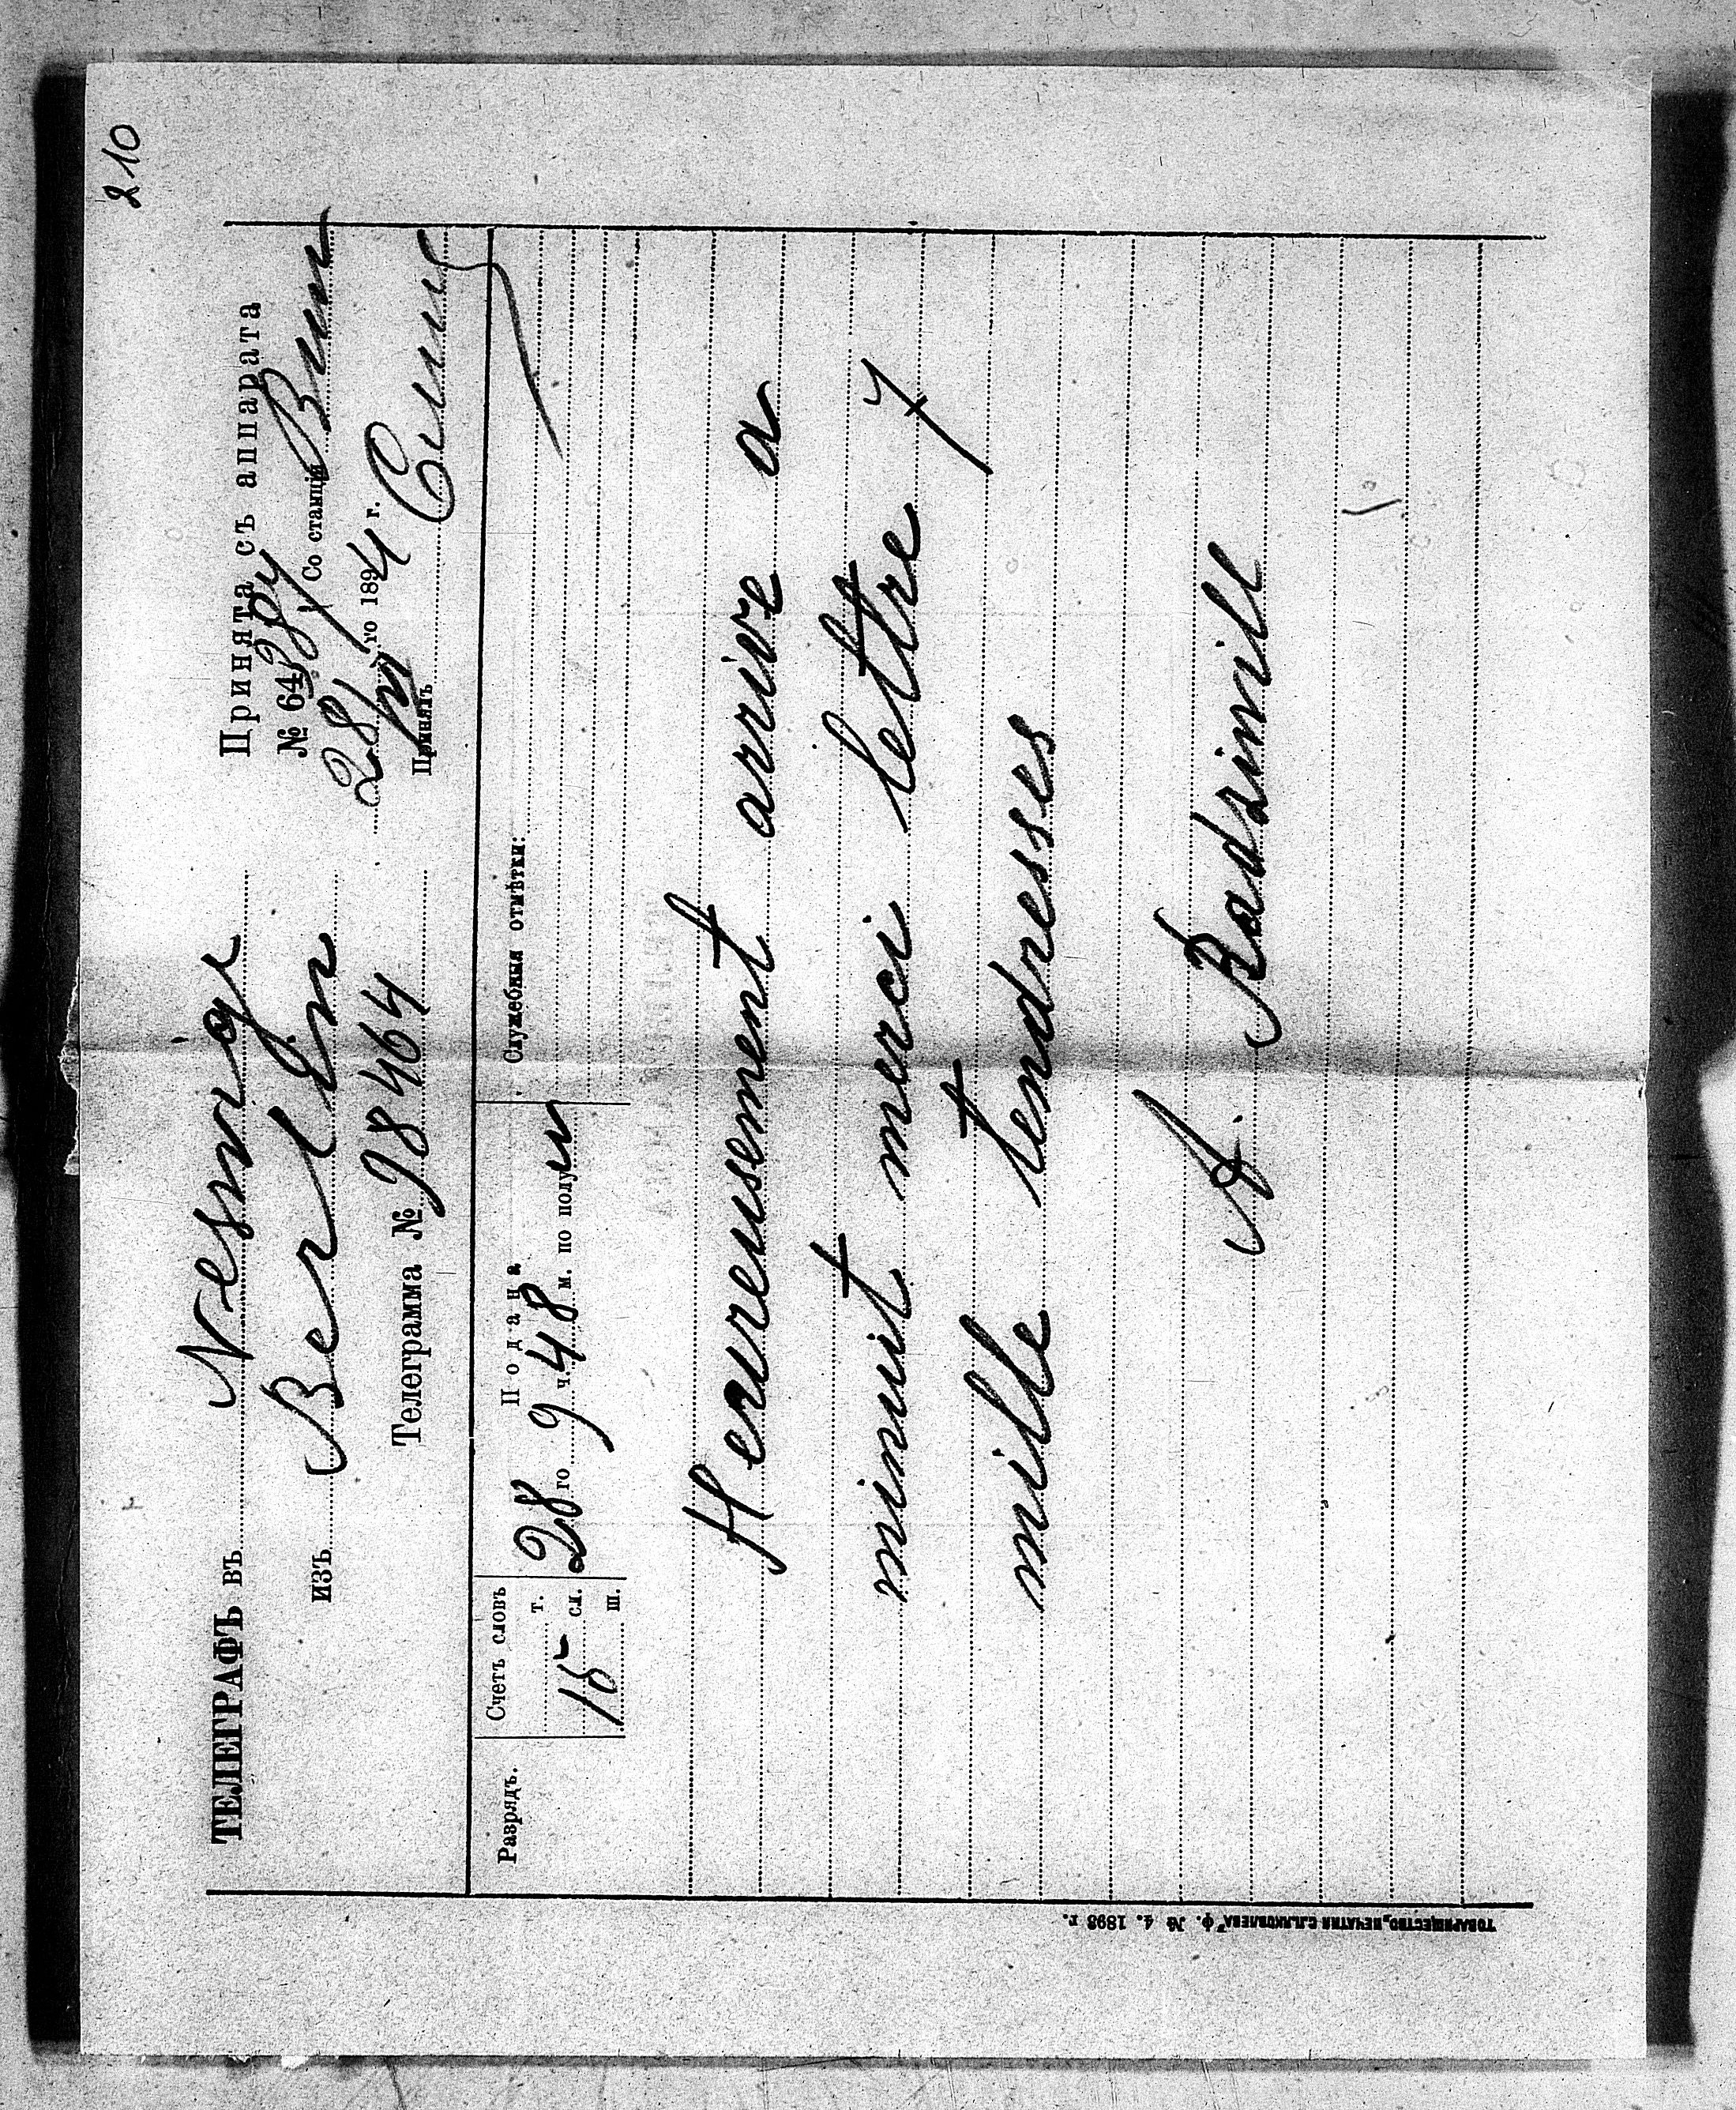 210
ТЕЛЕГРАФЪ въ Nesvige
изъ Berlin
Телеграмма № 98464
Принята съ аппарата
№ 64
Со станціи Вил
28/ го 1894 г.
Принялъ
Разрядъ.
Счетъ словъ
т.
15 сл.
ш.
Подана
28 го 9 ч. 48 м. по полу н
Служебныя отмѣтки:
Heureusement arrive a
minuit merci lettre 7
mille tendresses
A. Radsimill
ТОВАРИЩЕСТВО „ПЕЧАТНЯ С.П.ЯКОВЛЕВА“ Ф. № 4. 1893 г.